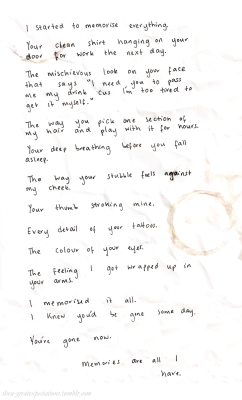 I started to memorise everything.
Your clean shirt hanging on your
door for work the next day.
The mischievous look on your face
that says "I need you to pass
me my drink 'cus I'm too tired to
get it myself."
The way you pick one section of
my hair and play with it for hours.
Your deep breathing before you fall
asleep.
The way your stubble feels against
my cheek.
Your thumb stroking mine.
Every detail of your tattoos.
The colour of your eyes.
The feeling I got wrapped up in
your arms.
I memorised it all.
I knew you'd be gone some day.
You're gone now.
Memories are all I
have.